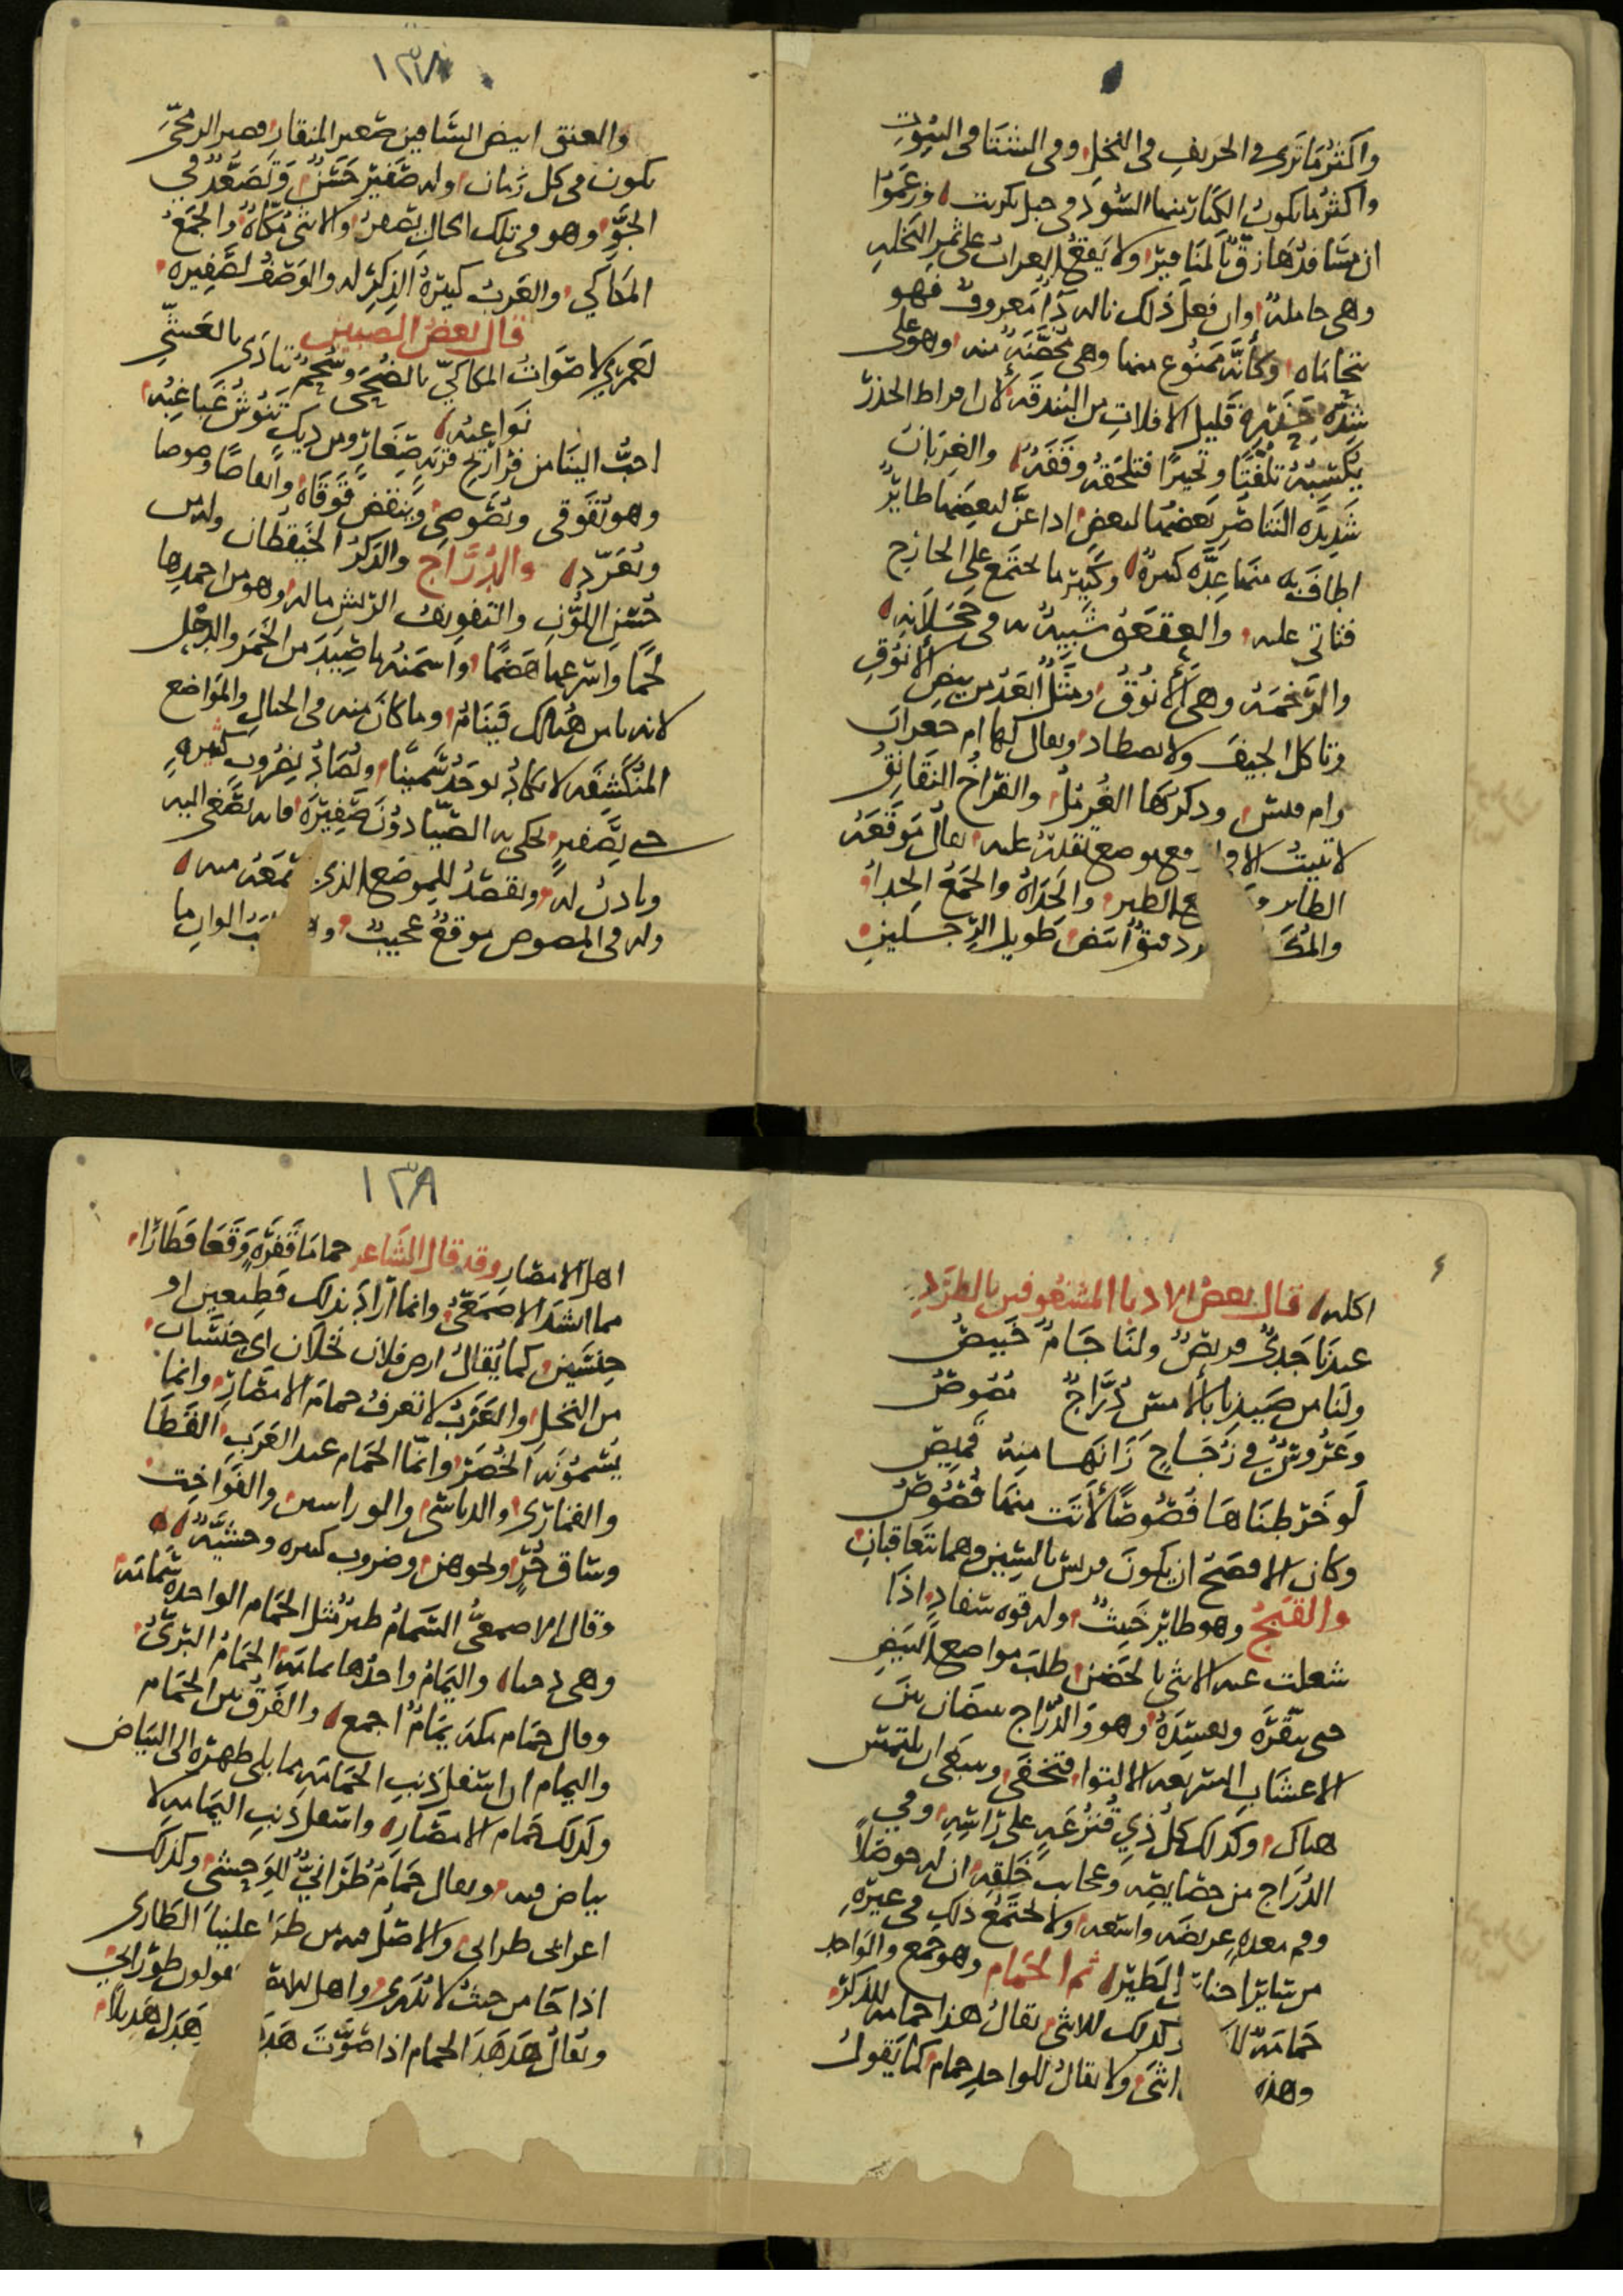 واكثر ما ترى في الخريف في النخل وفي الشتا في البيوت
واكثر ما يكون الكبار منها السود في جبل تكريت وزعموا
ان تسافدها زق بالمناقير ولا يقع الغراب على ثمر النخله
وهي حامله وان فعل ذلك ناله ذا معروف فهو
يتحاماه وكانه ممنوع منها وهي محصنه منه وهو على
شده حذره قليل الافلات من البندقه لان افراط الحذر
يكسبه تلفتا وتحيرا فتلحقه وقفه والغربان
شديده التناصر بعضها لبعض اذا عن لبعضها طاير
اطاف به منها عده كبيره وكبير ما يجتمع على الجارح
فتاتي عليه والعقعق شبيه به في حجلانه
والرخمه وهي الانوق ومثل ابعد من بيض الانوق
وتاكل الجيف ولا تصطاد ويقال لها ام جعران
وام قيس وذكرها الغرمل والفراخ النقانق
لا تبيت الا في موضع تقلبه عليه يقال موقعه
الطاير الطير والحداه والجمع الحدا
والمك ابيض طويل الرجلين
١٣٧
والعنق ابيض الساقين صغير المنقار قصير الرمجى
يكون في كل زمان وله صفير حسن وتصعد في
الجو وهو في تلك الحال يصفر والانثى مكاه والجمع
المكاكي والعرب كثيره الذكر له والوصف لصفيره
قال بعض الضبيين
لعمري لاصوات المكاكي بالضحى وسحم تنادى بالعشي
نواعبه
احب الينا من فراريج قريه صغار ومن ديك تنوش غباغبه
وهو يقوقى ويصوصى وينقض قوقاه وانقاضا وصوصا
ويغرد والدراج والذكر الخيقطان وليس
حسن اللون والتفويف الريش ما له وهو من احمدها
لحما واسرعها هضما واسمنه ما صيد من الخمر والدغل
لانه يامن هنالك فينام وما كان منه في الجبال والمواضع
المنكشفه لا يكاد يوجد سمينا ويصاد بضروب كثيره
حتى بصفير يحكي به الصيادون صفيره فانه يصغى اليه
وياذن له ويقصد للموضع الذي سمعه منه
وله في المصوص موقع عجيب الوان ما
اكله قال بعض الادبا المشغوفين بالطرد
عندنا جدي قريص ولنا جام خبيص
ولنا من صيدنا بالامس دراج مصوص
وعروس في زجاج زانها منه قميص
لو خرطناها فصوصا لاتت منها فصوص
وكان الافصح ان يكون قريس بالسين وهما تتعاقبان
والقبج وهو طاير خبيث وله قوه سفاد اذا
شغلت عنه الانثى بالحضن طلب مواضع البيض
حتى ينقره ويفسده وهو والدراج بيضان بين
الاعشاب السريعه الالتوا فتخفى وينبغي ان يلتمس
هناك وكذلك كل ذي قنزعه على راسه وفي
الدراج من خصايصه وعجايب خلقه ان له حوصلا
وفم معده عريضه واسعه ولا يجتمع ذلك في غيره
من ساير اجناس الطير ثم الحمام وهو جمع والواحد
حمامه وكذلك للانثى يقال هذا حمامه للذكر
وهذه انثى ولا يقال للواحد حمام كما يقول
١٣٨
اهل الامصار وقد قال الشاعر حماما قفره وقعا فطارا
مما انشد الاصمعي وانما اراد بذلك قطيعين او
جنسين كما يقال ارض فلان نخلان اي جنسان
من النخل والعرب لا تعرف حمام الامصار وانما
يسمونه الخضر وانما الحمام عند العرب القطا
والقماري والدباسي والوراسين والفواخت
وساق حر ونحوهن وضروب كثيره وحشيه
وقال الاصمعي السمام طير مثل الحمام الواحده سمامه
وهي واليمام واحدها يمامه الحمام البري
وقال حمام مكه يمام اجمع والفرق بين الحمام
واليمام ان اسفل ذنب الحمامه مما يلي ظهره الى البياض
وكذلك حمام الامصار واسفل ذنب اليمامه لا
بياض فيه ويقال حمام طراني للوحشي وكذلك
اعرابي طراني والاصل فيه من طرا علينا الطارى
اذا جا من حيث لا يدرى واهل يقولون طوراني
ويقال هدهد الحمام اذا صوت هدل هديلا